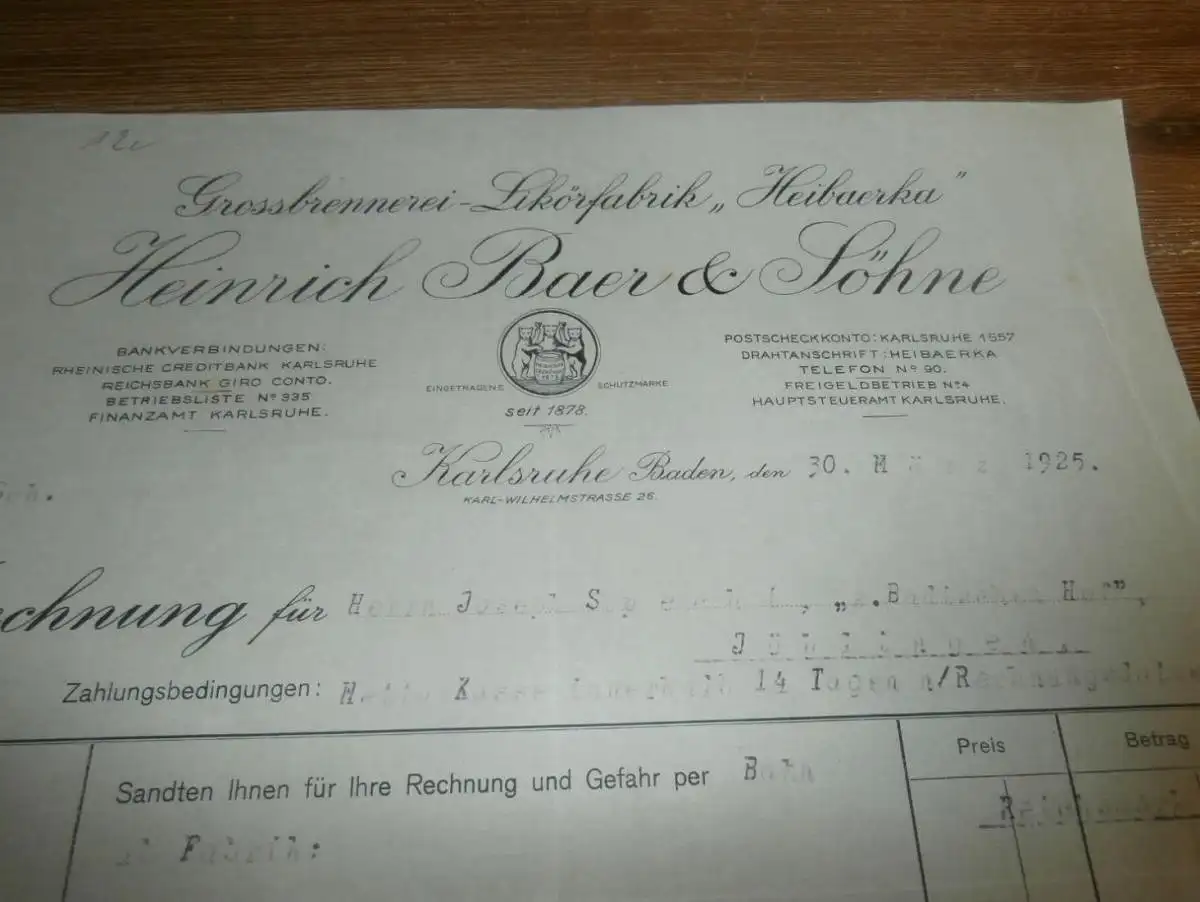 12
Grossbrennerei - Likörfabrik „Heibaerka"
Heinrich Baer & Söhne
BANKVERBINDUNGEN:
RHEINISCHE CREDITBANK KARLSRUHE
REICHSBANK GIRO CONTO.
BETRIEBSLISTE Nº 335
FINANZAMT KARLSRUHE.
EINGETRAGENE SCHUTZMARKE
seit 1878.
POSTSCHECKKONTO: KARLSRUHE 1657
DRAHTANSCHRIFT: HEIBAERKA
TELEFON Nº 90.
FREIGELDBETRIEB Nº 4
HAUPTSTEUERAMT KARLSRUHE.
Karlsruhe Baden, den 30. März 1925.
KARL-WILHELMSTRASSE 26.
chnung für Herrn Joseph Specht, „z. Badischen Hof",
Jöhlingen.
Zahlungsbedingungen: Netto Kasse innerhalb 14 Tagen n/Rechnungsdatum
Sandten Ihnen für Ihre Rechnung und Gefahr per Bahn
ab Fabrik:
Preis
Betrag